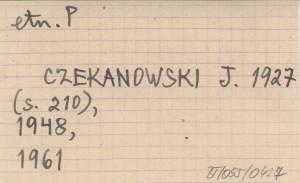 etn. P
CZEKANOWSKI J. 1927
(s. 210),
1948,
1961